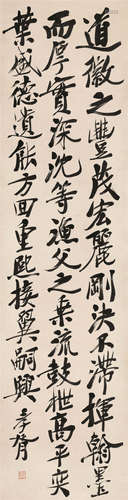 道徽之豐茂宏麗剛決不滯揮翰墨
而厚實深沈等漁父之乘流鼓枻高平奕
葉盛德遺能方回重熙接翼嗣興 孝胥